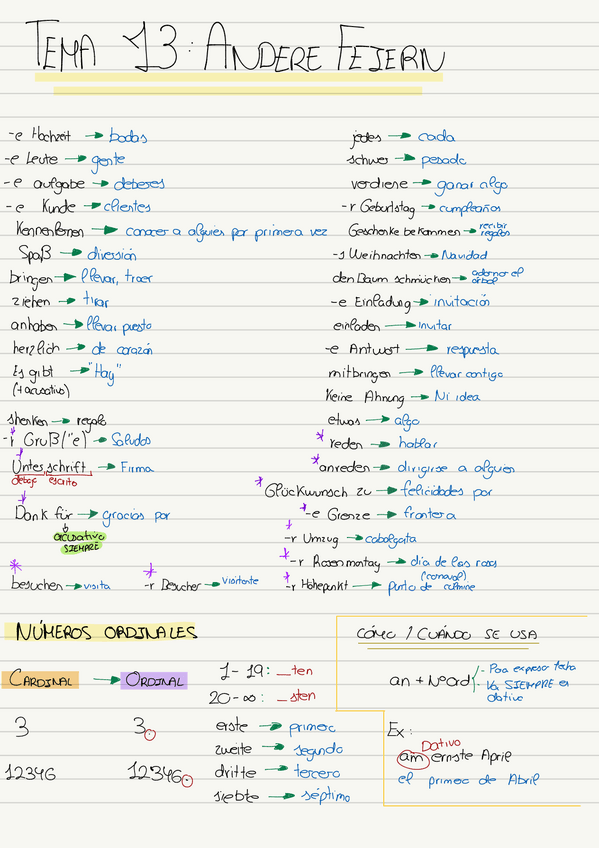 TEMA 13: ANDERE FEIERN
-e Hochzeit → bodas
-e Leute → gente
-e aufgabe → deberes
-e Kunde → clientes
Kennenlernen → conocer a alguien por primera vez
Spaß → diversión
bringen → llevar, traer
ziehen → tirar
anhaben → llevar puesto
herzlich → de corazón
Es gibt → "Hay"
(+acusativo)
shenken → regalo
-r Gruß(¨e) → Saludos
Unterschrift → Firma
debajo escrito
Dank für → gracias por
acusativo
SIEMPRE
besuchen → visita
-r Besucher → Visitante
jedes → cada
schwer → pesado
verdiene → ganar algo
-r Geburtstag → cumpleaños
Geschenke bekommen → recibir regalos
-s Weihnachten → Navidad
den Baum schmücken → adornar el árbol
-e Einladung → invitación
einladen → invitar
-e Antwort → respuesta
mitbringen → llevar contigo
Keine Ahnung → Ni idea
etwas → algo
reden → hablar
anreden → dirigirse a alguien
Glückwunsch zu → felicidades por
-e Grenze → frontera
-r Umzug → cabalgata
-r Rosenmontag → dia de las rosas
(carnaval)
-r Höhepunkt → punto de culmine
NÚMEROS ORDINALES
CARDINAL → ORDINAL
3 3.
12346 12346.
1-19: _ten
20-∞: _sten
erste → primero
zweite → segundo
dritte → tercero
siebte → séptimo
CÓMO / CUÁNDO SE USA
an + Nºord
- Para expresar fecha
- Va SIEMPRE en dativo
Ex:
Dativo
am ernste April
el primero de Abril